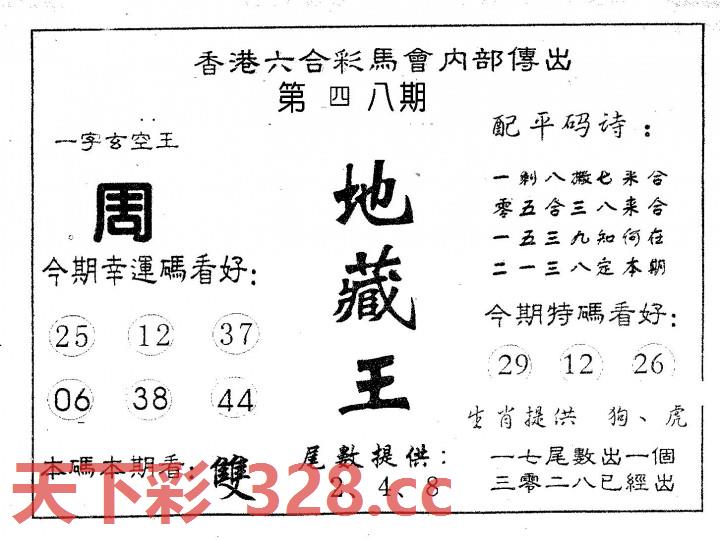 香港六合彩馬會内部傳出
第四八期
一字玄空王
周
今期幸運碼看好:
25 12 37
06 38 44
本碼本期看: 雙
地藏王
尾數提供:
2、4、8
配平码诗:
一剩八撒七米合
零五合三八来合
一五三九知何在
二一三八定本期
今期特碼看好:
29 12 26
生肖提供 狗、虎
一七尾數出一個
三零二八已經出
天下彩 328.cc